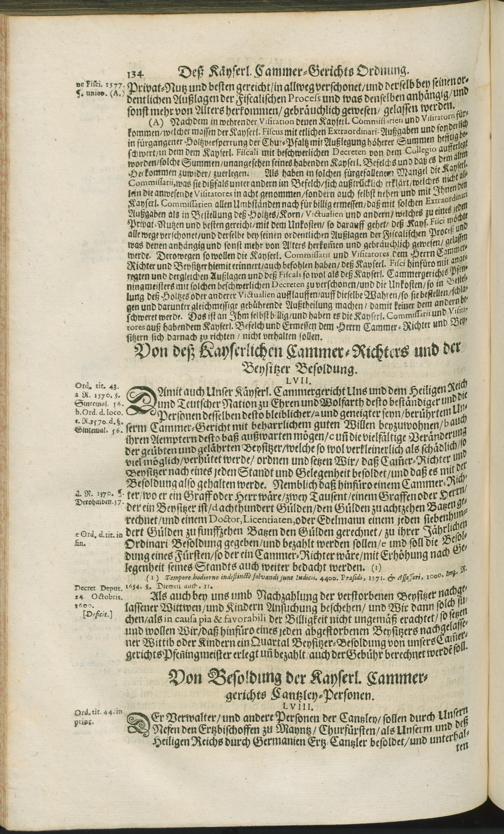 134 Deß Käyserl. Cammer-Gerichts Ordnung.
ne Fisci. 1577.
¶. unico. (A.)
Privat-Nutz und besten gereicht/in allweg verschonet/und derselb bey seinen or-
dentlichen Außlagen der Fiscalischen Process und was denselben anhängig/und
sonst mehr von Alters herkommen/gebräuchlich gewesen/gelassen werden.
(A) Nachdem in wehrender Visitation denen Käyserl. Commissarien und Visitatorn für-
kommen/welcher massen der Käyserl. Fiscus mit etlichen Extraordinari-Außgaben und sonderlich
in fürgangener Holtzversperrung der Chur-Pfaltz mit Außlegung höherer Summen hefftig be-
schwert/in dem dem Käyserl. Fiscali mit beschwerlichen Decreten von dem Collegio aufferlegt
worden/solche Summen/unangesehen seines habenden Käyserl. Befelchs und daß es dem alten
Herkommen zuwider/zuerlegen. Als haben in solchen fürgefallenen Mangel die Käyserl.
Commissarii, was sie dißfals unter andern im Befelch/sich außtrücklich erklärt/welches nicht al-
lein die anwesende Visitatores in acht genommen/sondern auch selbst neben und mit Ihnen den
Käyserl. Commissarien allen Umbständen nach für billig ermessen/daß mit solchen Extraordinari
Außgaben als in Bestellung deß Holtzes/Korn/Victualien und andern/welches zu eines jeden
Privat-Nutzen und besten gericht/mit dem Unkosten/so darauff gehet/deß Käys. Fisci möchte
allewege verschonet/und derselbe bey seinen ordentlichen Außlagen der Fiscalischen Process und
was denen anhängig und sonst mehr von Alters herkomen und gebräuchlich gewesen/gelassen
werde. Derowegen so wollen die Käyserl. Commissarii und Visitatores dem Herrn Cammer-
Richter und Beysitzer hiemit erinnert/auch befohlen haben/deß Käyserl. Fisci hinfüro mit an-
regten und dergleichen Außlagen und deß Fiscals so wol als deß Käyserl. Cammergerichts Pfen-
ningmeisters mit solchen beschwerlichen Decreten zu verschonen/und die Unkosten/so in Bestel-
lung deß Holtzes oder anderer Victualien aufflauffen/auff dieselbe Wahren/so sie bestellen/schla-
gen und darunter gleichmessige gebührende Außtheilung machen/damit keiner dem andern be-
schwert werde. Das ist an Ihm selbst billig/und haben es die Käyserl. Commissarii und Visita-
tores auß habendem Käyserl. Befelch und Ermessen dem Herrn Cammer-Richter und Bey-
sitzern sich darnach zu richten/nicht verhalten sollen.
Von deß Käyserlichen Cammer-Richters und der
Beysitzer Besoldung.
LVII.
Ord. tit. 43.
a R. 1570. §.
b. Ord. d. loco.
c. R. 1570. d. §.
DAmit auch Unser Käyserl. Cammergericht Uns und dem Heiligen Reich
und Teutscher Nation zu Ehren und Wolfarth desto beständiger und die
Personen desselben desto bleiblicher/a und geneigter seyn/berührtem Un-
serm Cammer-Gericht mit beharrlichem guten Willen beyzuwohnen/b auch
ihren Aemptern desto baß außwarten mögen/c uñ die vielfältige Veränderung
der geübten und gelährten Beysitzer/welche so wol verkleinerlich als schädlich/so
viel möglich/verhütet werde/ordnen und setzen Wir/daß Cam̃er-Richter und
Beysitzer nach eines jeden Standt und Gelegenheit besoldet/und daß es mit der
Besoldung also gehalten werde. Nemblich daß hinfüro einem Cammer-Rich-
d. R. 1570. ¶.
Derohalben. 37.
ter/wo er ein Graff oder Herr wäre/zwey Tausent/einem Graffen oder Herrn/
der ein Beysitzer ist/d achthundert Gülden/den Gülden zu achtzehen Batzen ge-
rechnet/und einem Doctor, Licentiaten, oder Edelmann einem jeden siebenhun-
e Ord. d. tit. in
fin.
dert Gülden zu funffzehen Batzen den Gülden gerechnet/zu ihrer Jährlichen
Ordinari Besoldung gegeben/und bezahlt werden sollen/e und soll die Besol-
dung eines Fürsten/so der ein Cammer-Richter wäre/mit Erhöhung nach Ge-
legenheit seines Standts auch weiter bedacht werden. (1)
(1) Tempore hodierno indistinctè solvendi sunt Iudici, 4400. Præsidi, 1371. & Assessori, 1000. Imp. R.
1654. §.
Decret. Deput.
24 Octobris.
1600.
[Deficit.]
Als auch bey uns umb Nachzahlung der verstorbenen Beysitzer nachge-
lassener Wittwen/und Kindern Ansuchung beschehen/und Wir dann solch su-
chen/als in causa pia & favorabili der Billigkeit nicht ungemäß erachtet/so setzen
und wollen Wir/daß hinfüro eines jeden abgestorbenen Beysitzers nachgelasse-
ner Wittib oder Kindern ein Quartal Beysitzer-Besoldung von unsers Cam̃er-
gerichts Pfeñingmeister erlegt uñ bezahlt auch der Gebühr berechnet werdẽ soll.
Von Besoldung der Käyserl. Cammer-
gerichts Cantzley-Personen.
LVIII.
Ord. tit. 44. in
princ.
DEr Verwalter/und andere Personen der Cantzley/sollen durch Unsern
Nefen den Ertzbischoffen zu Mayntz/Churfürsten/als Unserm und deß
Heiligen Reichs durch Germanien Ertz Cantzler besoldet/und unterhal-
ten